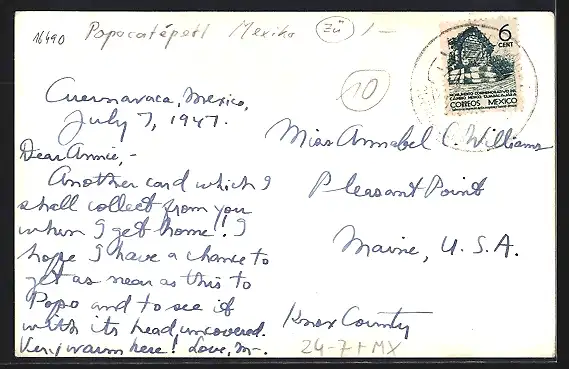 16490 Popocatépetl Mexiko ZÜ 1-
10
6
CENT
CORREOS MEXICO
Cuernavaca, Mexico,
July 7, 1947.
Dear Annie,-
Another card which I
shall collect from you
when I get home! I
hope I have a chance to
get as near as this to
Popo and to see it
with its head uncovered.
Very warm here! Love, M-.
Miss Annabel C. Williams
Pleasant Point
Maine, U.S.A.
Knox County
24-7+MX